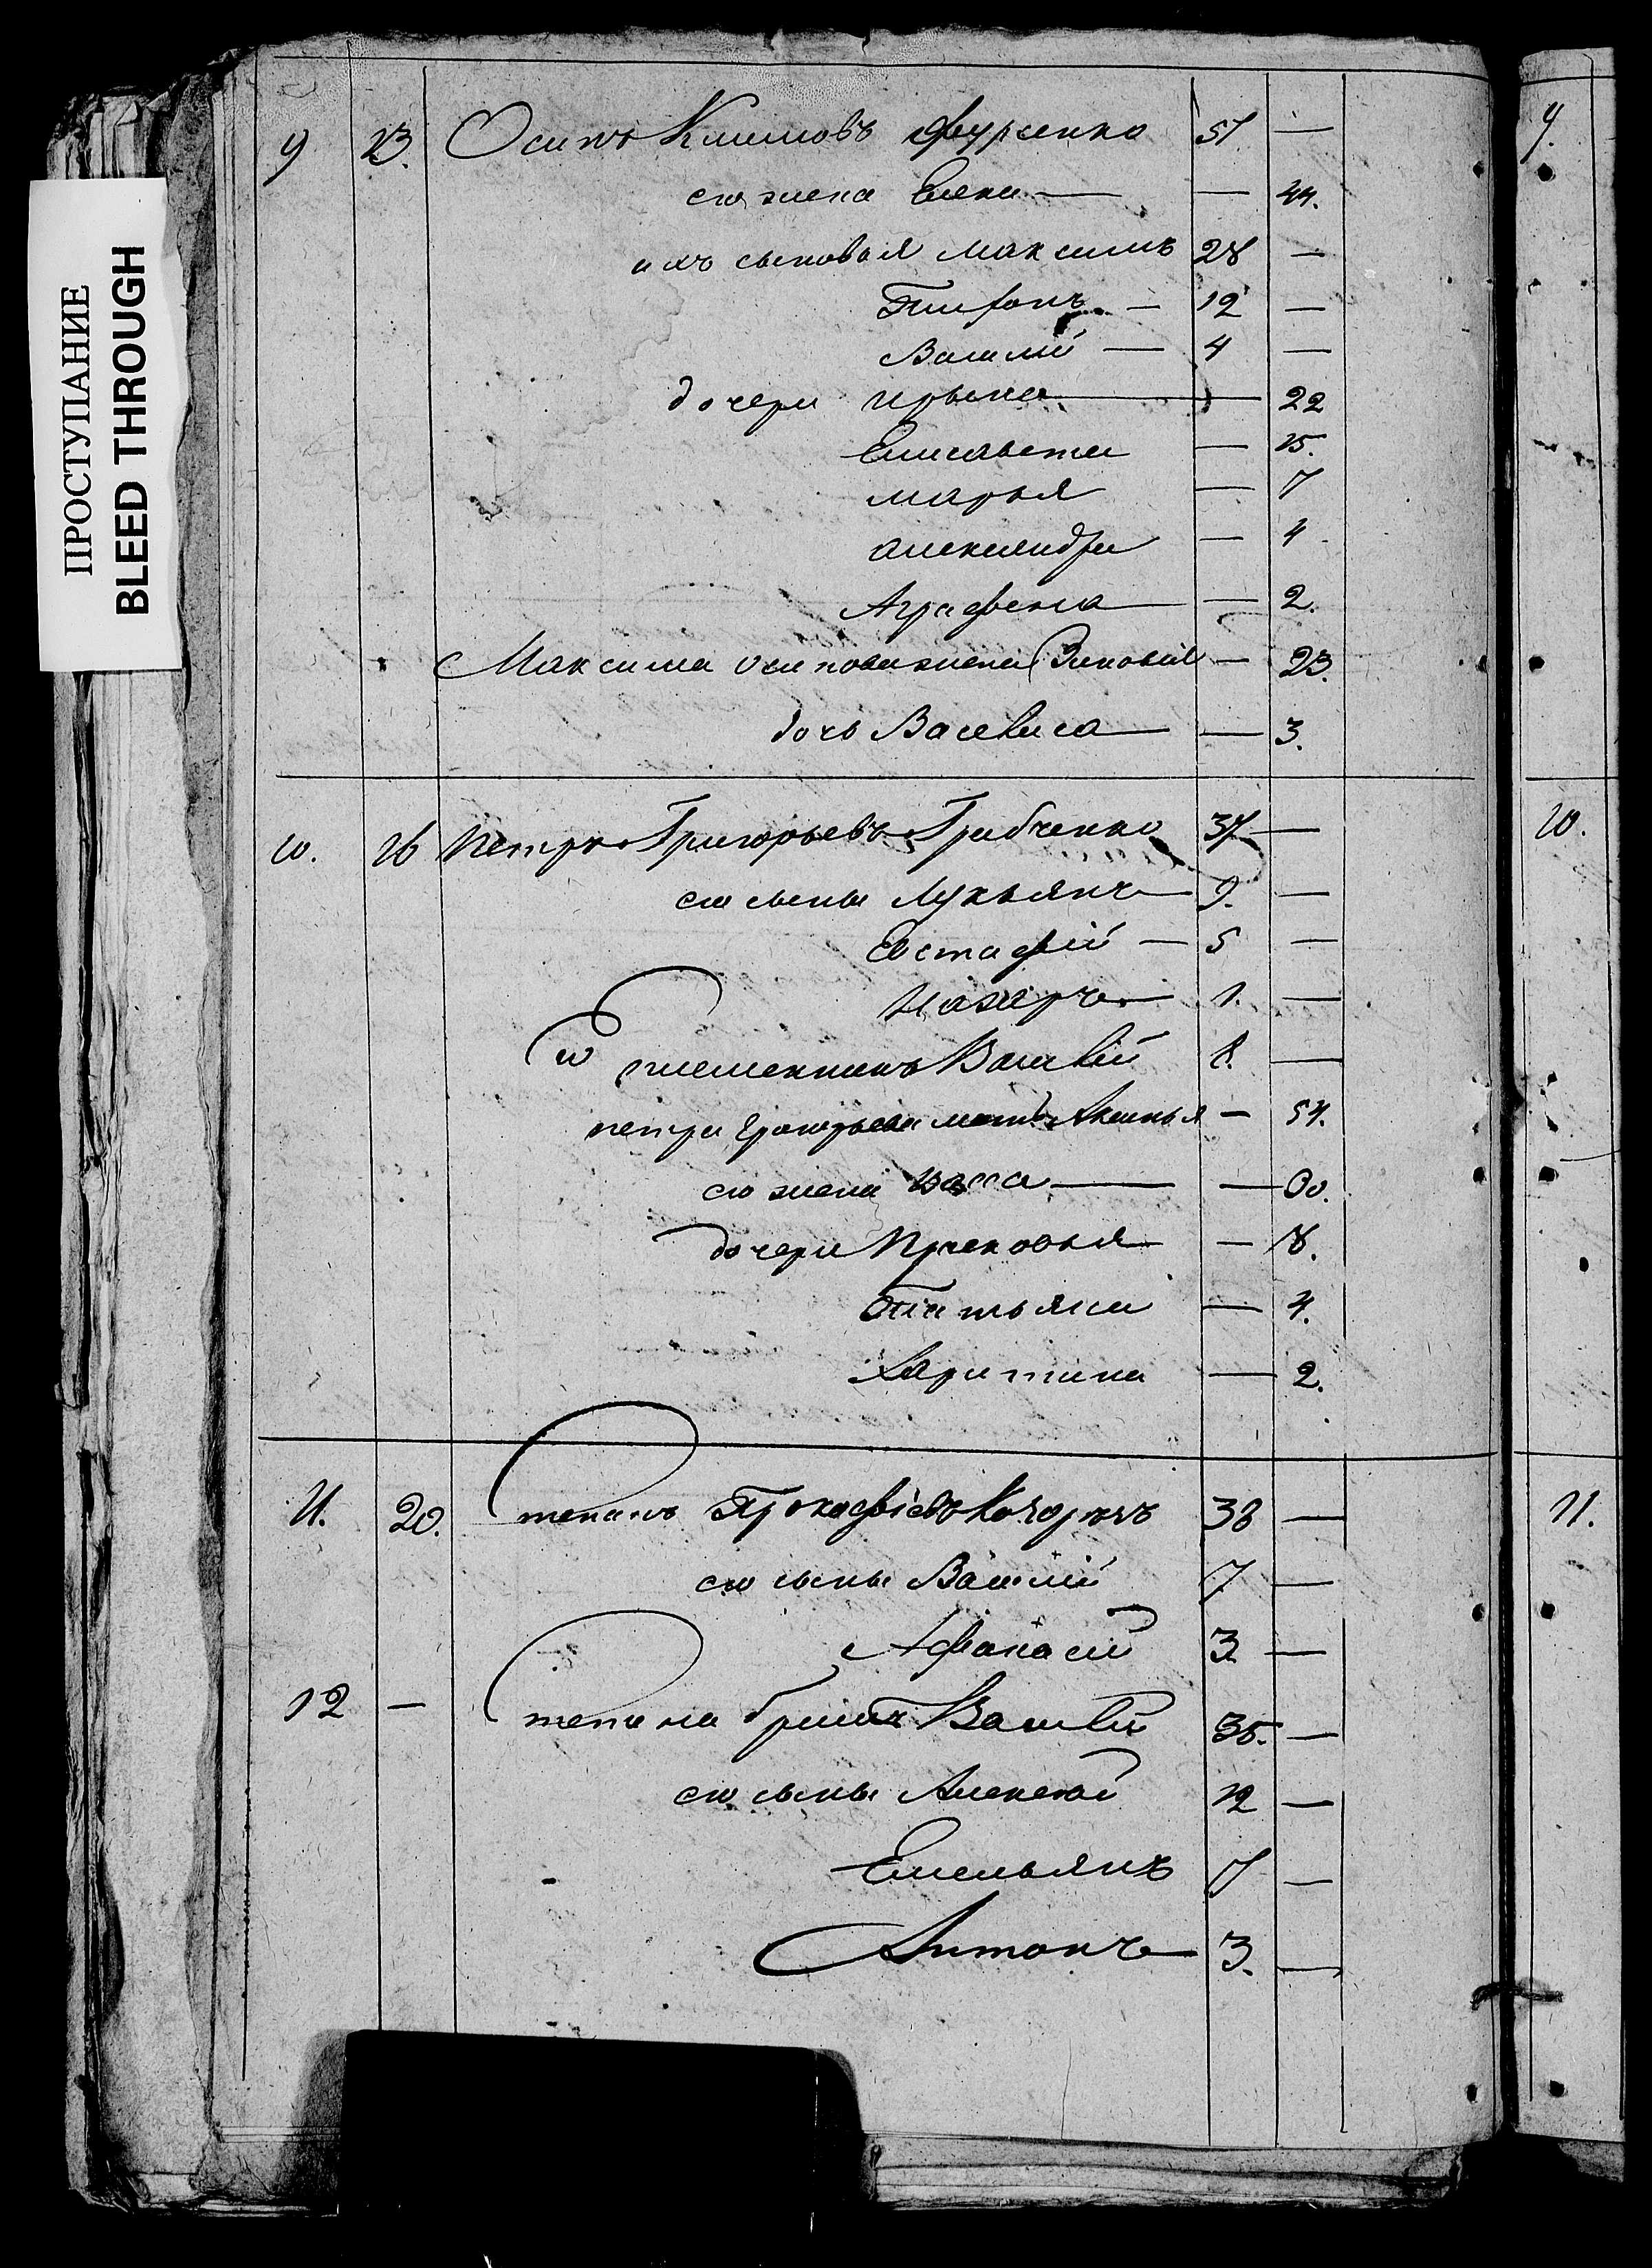 ПРОСТУПАНИЕ
BLEED THROUGH
9 13. Осипъ Климовъ Фурсенко 51 —
его жена Елена — — 44.
ихъ сыновья Максимъ 28 —
Тимофонъ — 12 —
Василій — 4 —
дочери Ирына — 22
Елисавета — 15.
Марья — 7
Александра — 4
Аграфена — 2.
Максима Осипова жена Зиновія — 23.
дочь Васелиса — 3.
10. 16 Петръ Григорьевъ Грибченко 37 —
его сыны Лукьянъ 9. —
Евстафій — 5 —
Назаръ 1. —
Его племенникъ Василій 8. —
Петра Григорьева мать Аксинья — 54.
его жена Васса — — 30.
дочери Прасковья — 8.
Татьяна — 4.
Харитина — 2.
11. 20. Степанъ Прокофіевъ 38 —
его сыны Василій 7 —
Афанасій 3 —
12 — Степана братъ Василій 35. —
его сыны Алексѣй 12 —
Емельянъ 7 —
Антонъ 3. —
9.
10.
11.